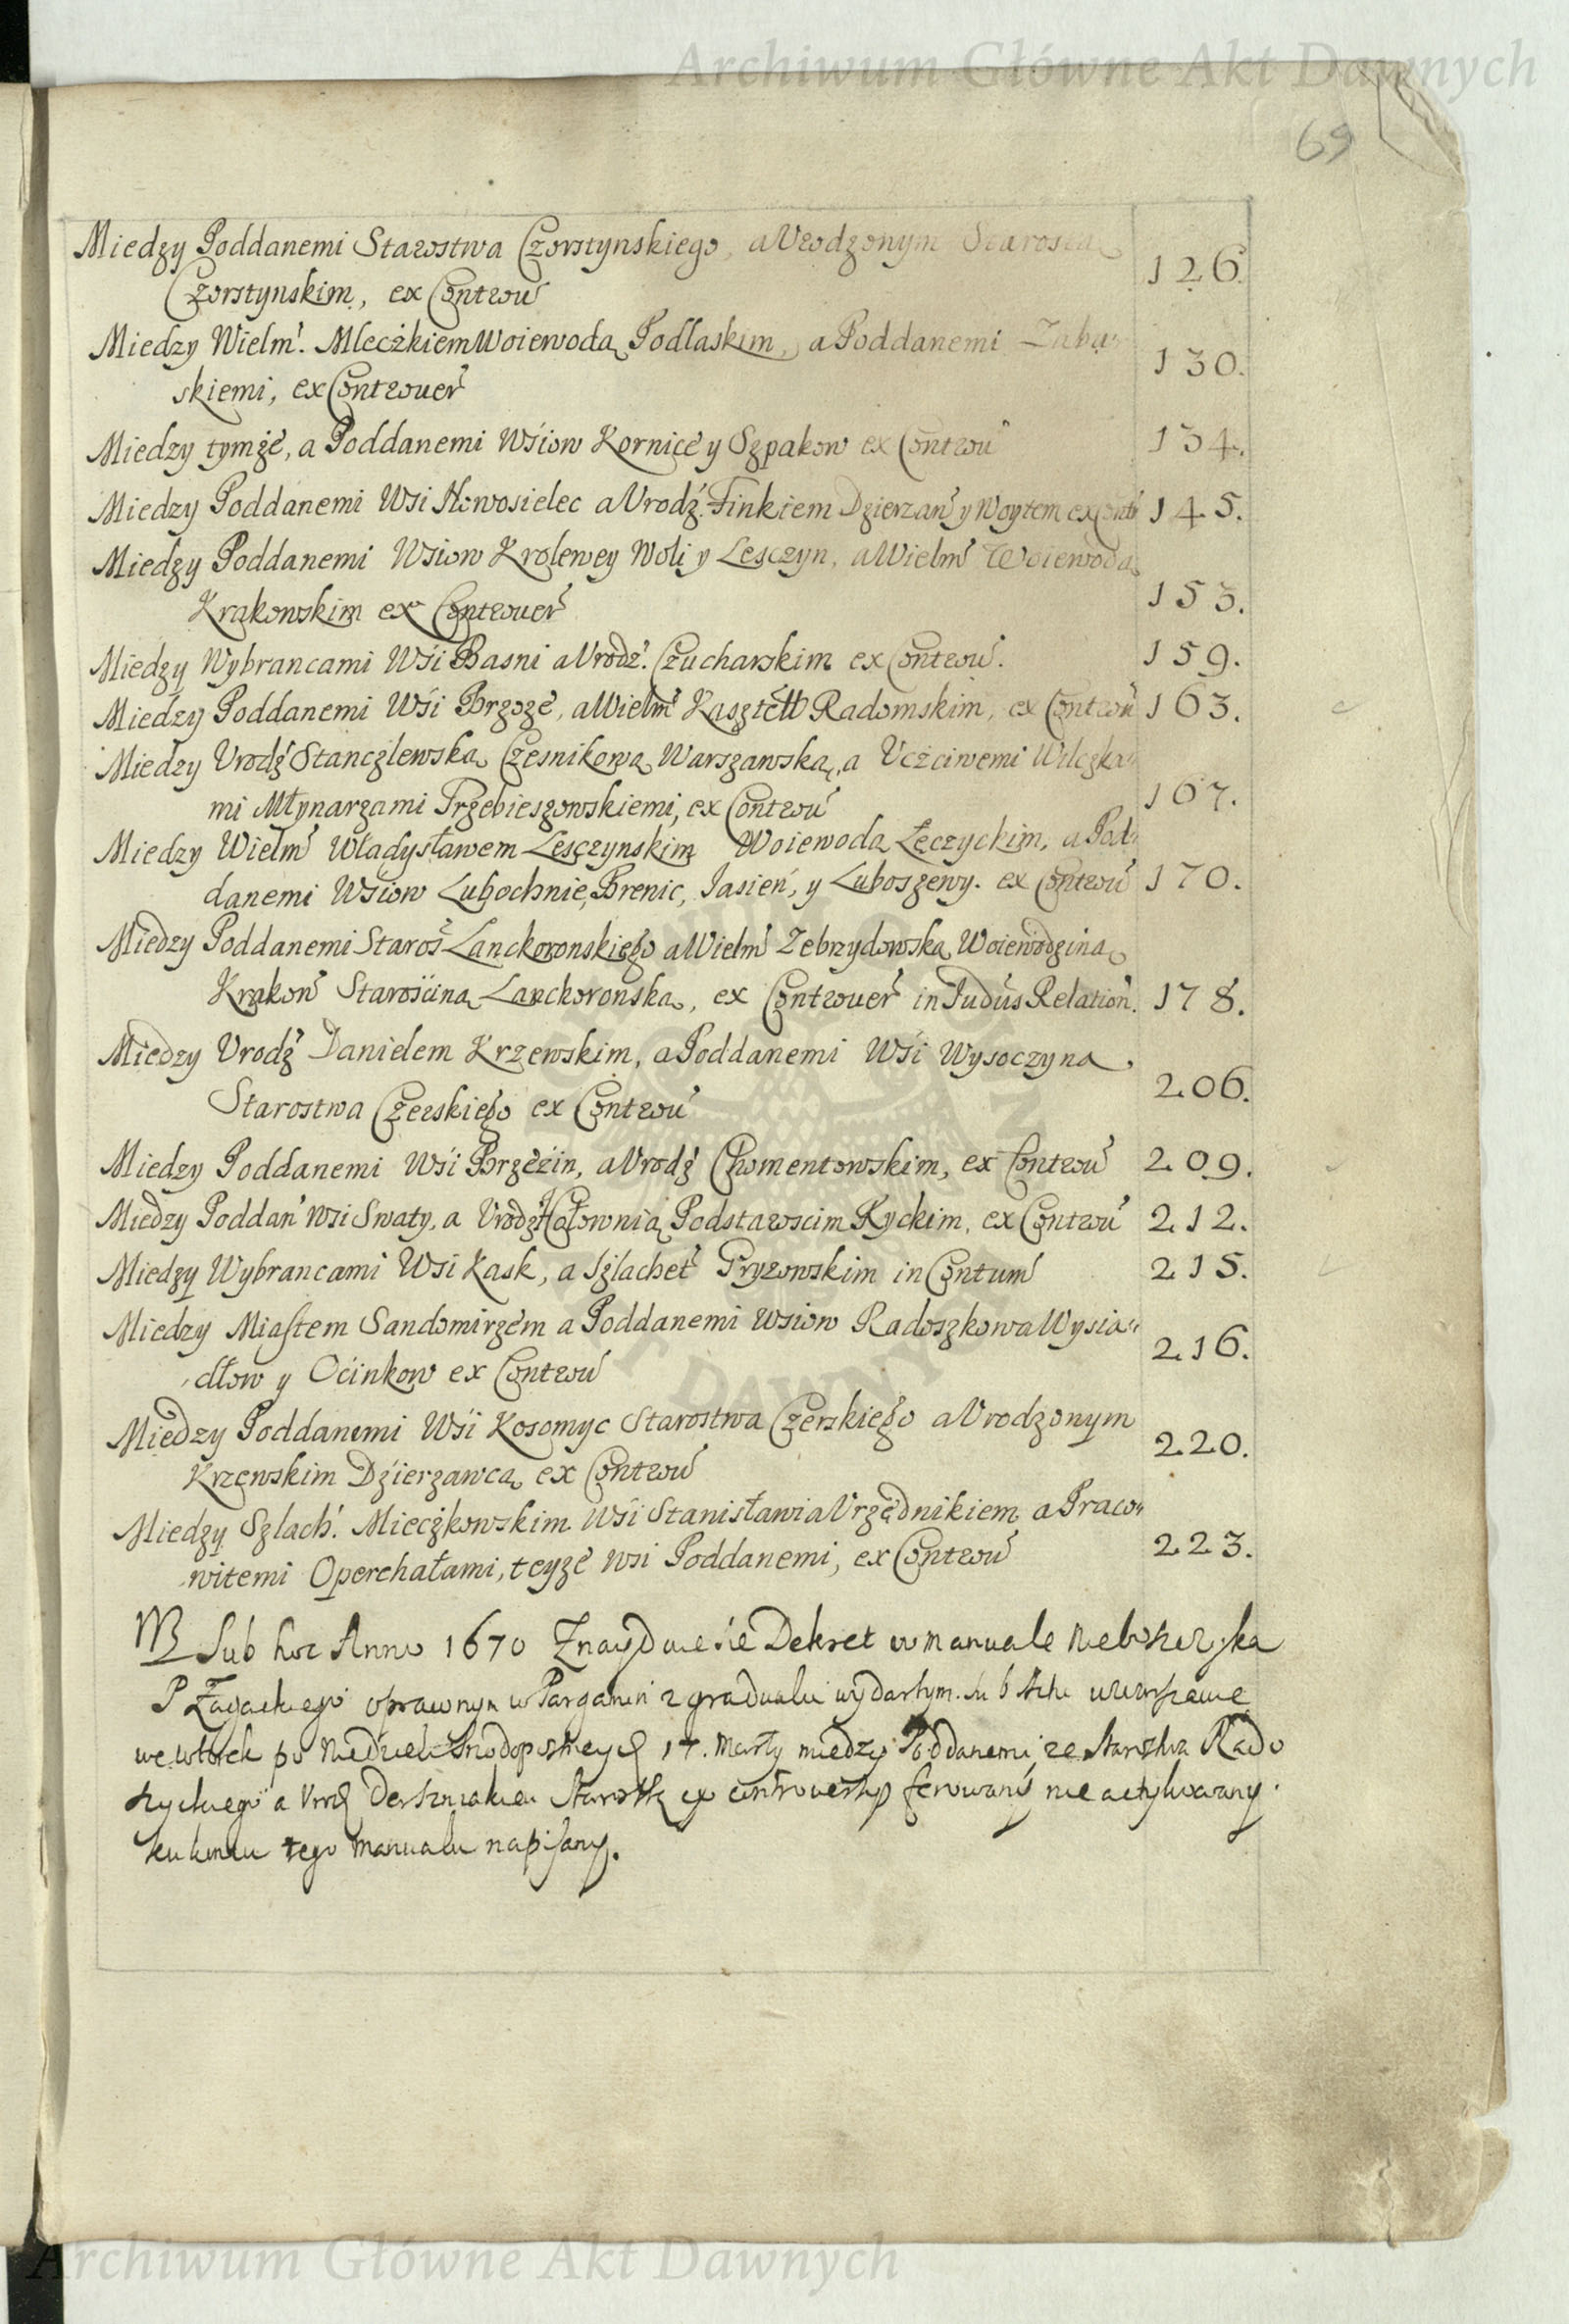 Archiwum Główne Akt Dawnych
69
Miedzy Poddanemi Starostwa Czorstynskiego, a Vrodzonym Starostą
Czorstynskim, ex Controu 126.
Miedzy Wielm. Mleczkiem Woiewodą Podlaskim, a Poddanemi
skiemi, ex Controuer 130.
Miedzy tymże, a Poddanemi Wsiow Kornice y Szpakow ex Controu 134.
Miedzy Poddanemi Wsi Nowosielec a Vrodz. Finkiem Dzierzaw y Woytem ex Contr 145.
Miedzy Poddanemi Wsiow Krolewey Woli y Lesczyn, a Wielm Woiewodą
Krakowskim ex Controuer 153.
Miedzy Wybrancami Wsi Basni a Vrodz. Czucharskim ex Controu. 159.
Miedzy Poddanemi Wsi Brzoze, a Wielm Kasztell Radomskim, ex Controu 163.
Miedzy Vrodz Stanczlewską Czesnikową Warszawską, a Vczciwemi Wilczka
mi Młynarzami Trzebieszowskiemi, ex Controu 167.
Miedzy Wielm Władysławem Lesczynskim Woiewodą Łeczyckim, a Pod
danemi Wsiow Lubochnie, Brenic, Jasień, y Luboszewy. ex Controu 170.
Miedzy Poddanemi Staros Lanckoronskiego a Wielm Zebrzydowską Woiewodziną
Krakow Starościną Lanckoronską, ex Controuer in Judus Relation. 178.
Miedzy Vrodz Danielem Krzewskim, a Poddanemi Wsi Wysoczyna
Starostwa Czerskiego ex Controu 206.
Miedzy Poddanemi Wsi Brzezin, a Vrodz Chomentowskim, ex Controu 209.
Miedzy Poddan Wsi Swaty, a Vrodz Hołownią Podstarościm Ryckim, ex Controu 212.
Miedzy Wybrancami Wsi Kask, a Szlachet Pryzowskim in Contum 215.
Miedzy Miastem Sandomirzem a Poddanemi Wsiow Radoszkowa Wysia
dłow y Ocinkow ex Controu 216.
Miedzy Poddanemi Wsi Kosomyc Starostwa Czerskiego a Vrodzonym
Krzewskim Dzierzawcą ex Controu 220.
Miedzy Szlach. Mieczkowskim Wsi Stanisławia Vrzędnikiem a Praco
witemi Operchałami, teyze wsi Poddanemi, ex Controu 223.
NB Sub hoc Anno 1670 Znayduie sie Dekret w manuale
P oprawnym w Pargamin z graduału wydartym.
we wtorek po Niedzieli Srodopostney 17. Marty miedzy Poddanemi ze Starostwa Rado
szyckiego a Vrod Starostą ex controuersys ferowany nie aktykowany
ku koncu tego manualu napisany.
Archiwum Główne Akt Dawnych